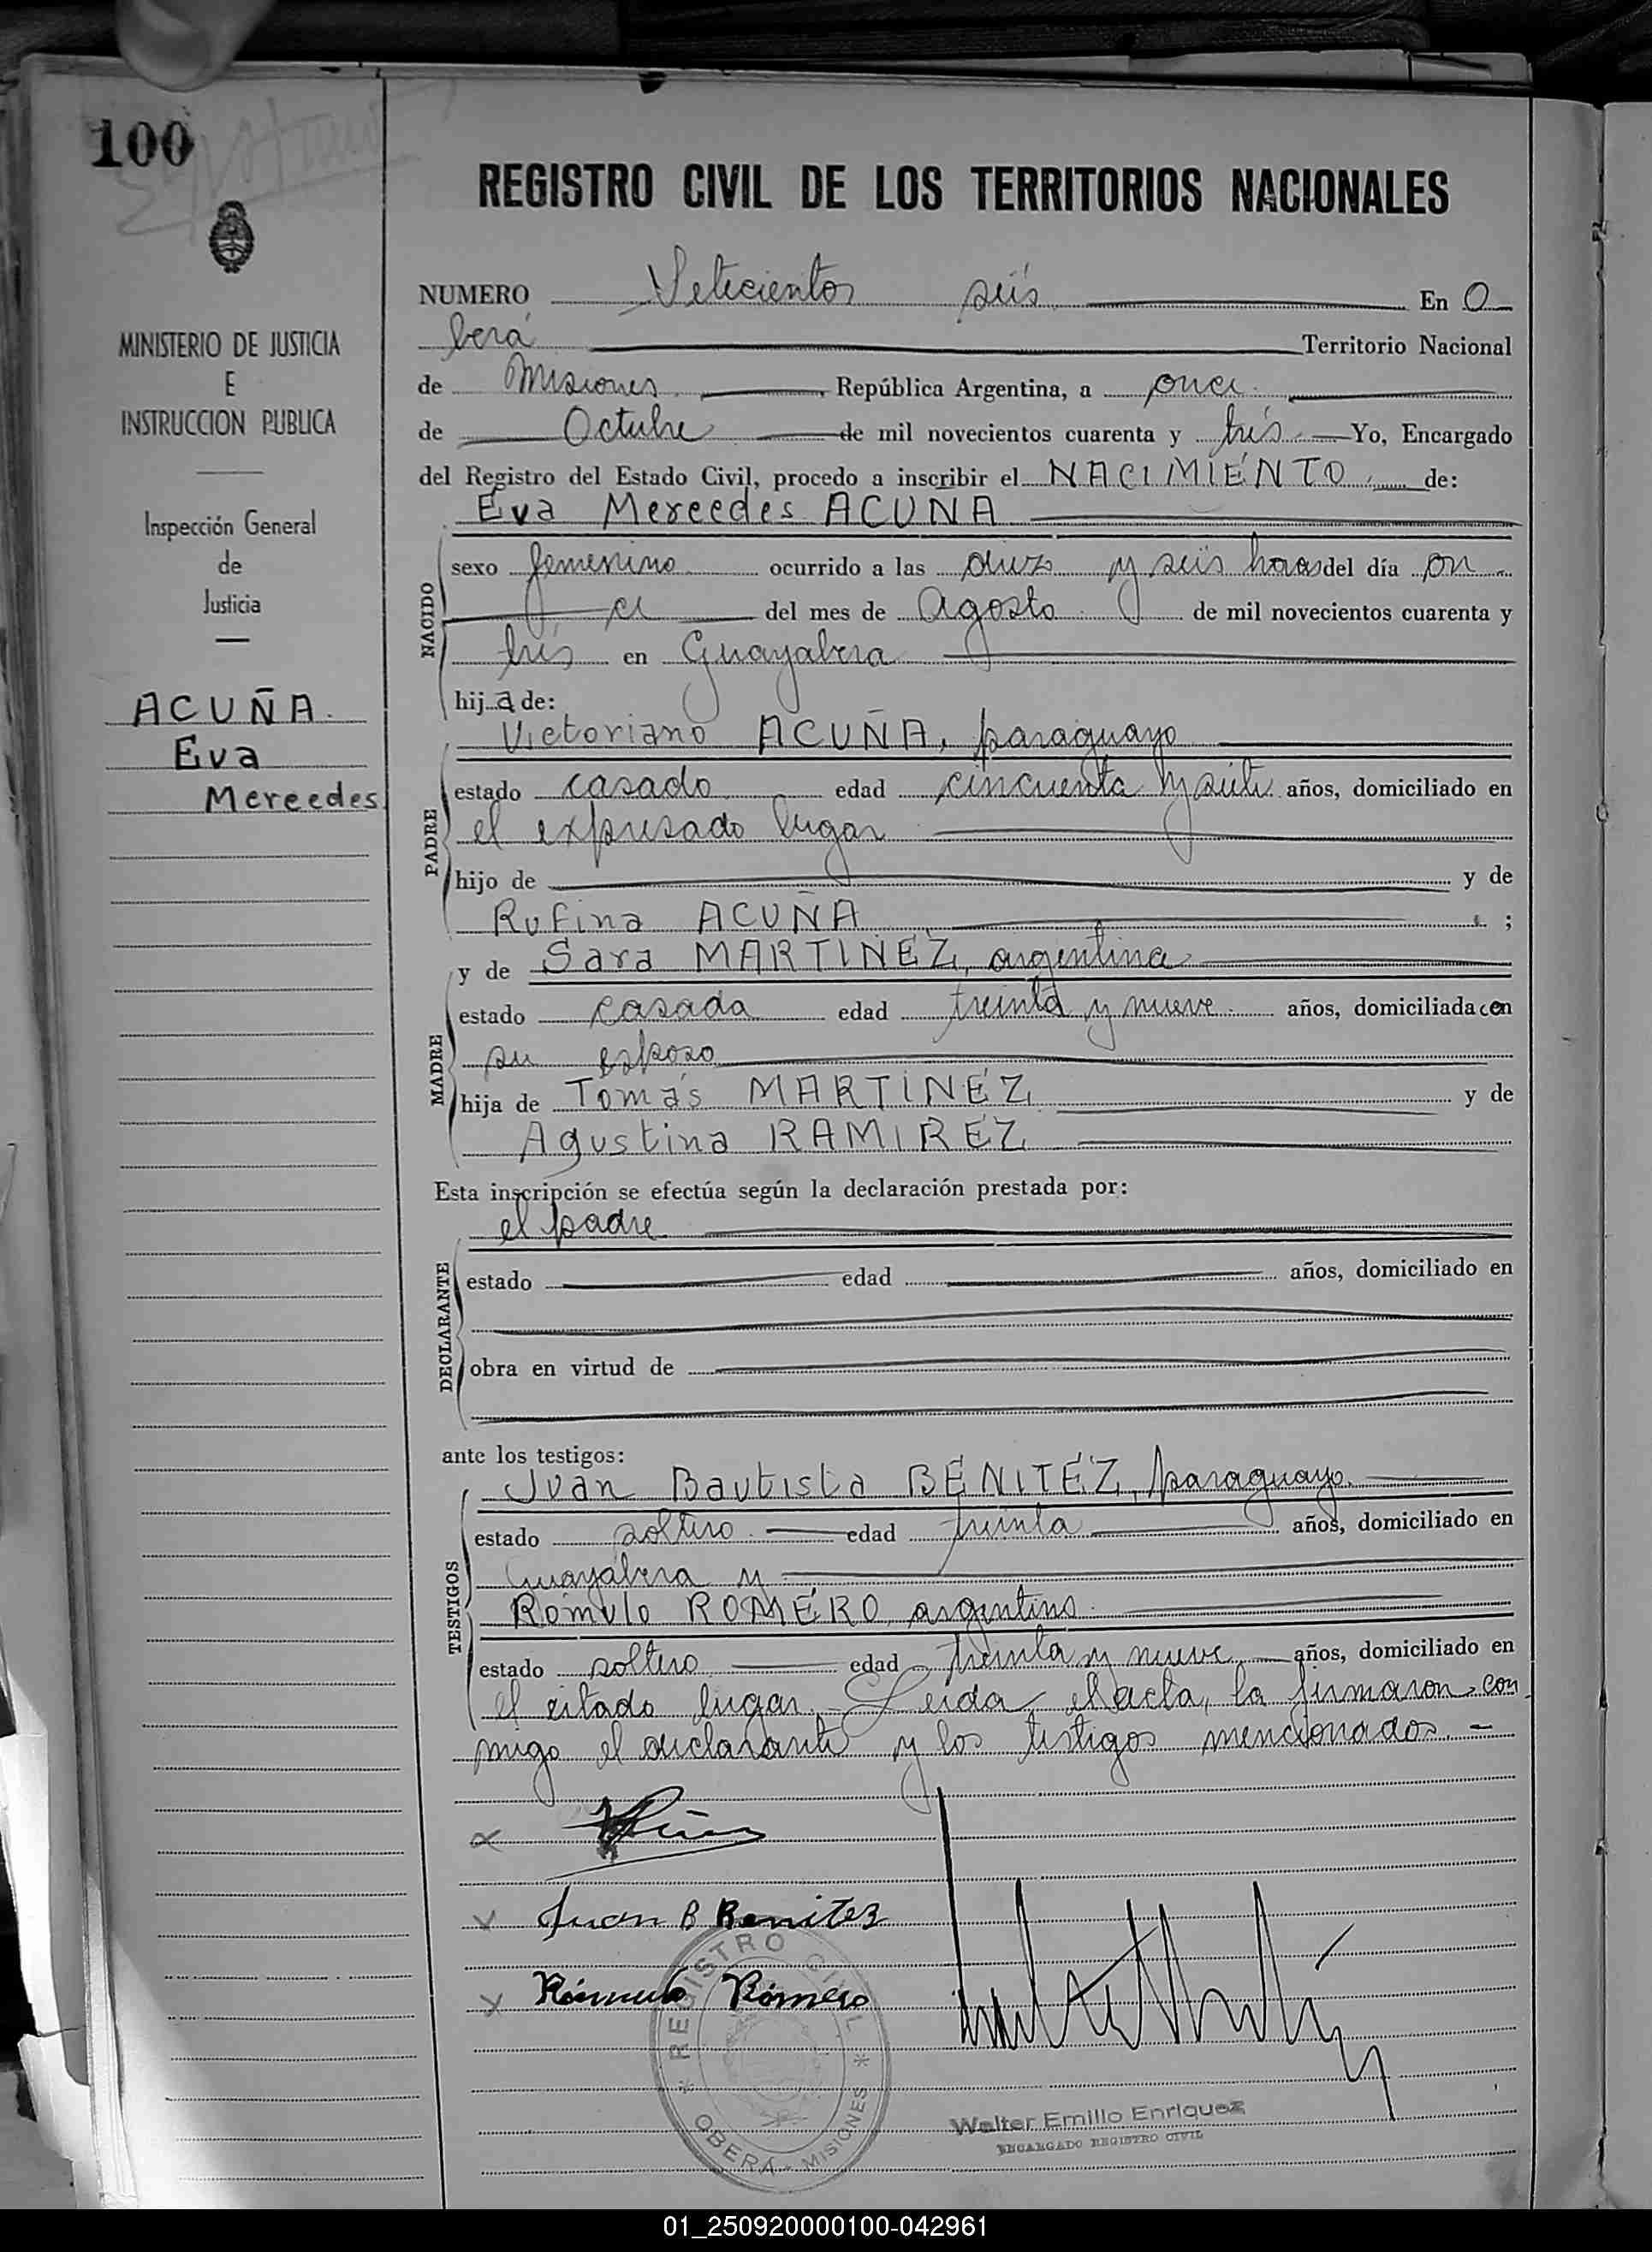 100
REGISTRO CIVIL DE LOS TERRITORIOS NACIONALES
MINISTERIO DE JUSTICIA
E
INSTRUCCION PUBLICA
Inspección General
de
Justicia
ACUÑA
Eva
Mercedes
NUMERO Setecientos seis En O
berá Territorio Nacional
de Misiones República Argentina, a once
de Octubre de mil novecientos cuarenta y trés Yo, Encargado
del Registro del Estado Civil, procedo a inscribir el NACIMIENTO de:
Eva Mercedes ACUÑA
NACIDO
sexo femenino ocurrido a las diez y seis horas del día on
ce del mes de Agosto de mil novecientos cuarenta y
trés en Guayabera
hija de:
Victoriano ACUÑA, paraguayo
PADRE
estado casado edad cincuenta y siete años, domiciliado en
el expresado lugar
hijo de y de
Rufina ACUÑA ;
y de Sara MARTINEZ, argentina
MADRE
estado casada edad treinta y nueve años, domiciliada con
su esposo
hija de Tomás MARTINEZ y de
Agustina RAMIREZ
Esta inscripción se efectúa según la declaración prestada por:
el padre
DECLARANTE
estado edad años, domiciliado en
obra en virtud de
ante los testigos:
Juan Bautista BENITEZ, paraguayo
TESTIGOS
estado soltero edad treinta años, domiciliado en
Guayabera y
Rómulo ROMERO, argentino
estado soltero edad treinta y nueve años, domiciliado en
el citado lugar. Leida el acta, la firmaron con
migo el declarante y los testigos mencionados. -
Juan B Benitez
Rómulo Romero
REGISTRO CIVIL
* OBERA - MISIONES *
Walter Emilio Enriquez
ENCARGADO REGISTRO CIVIL
01_250920000100-042961